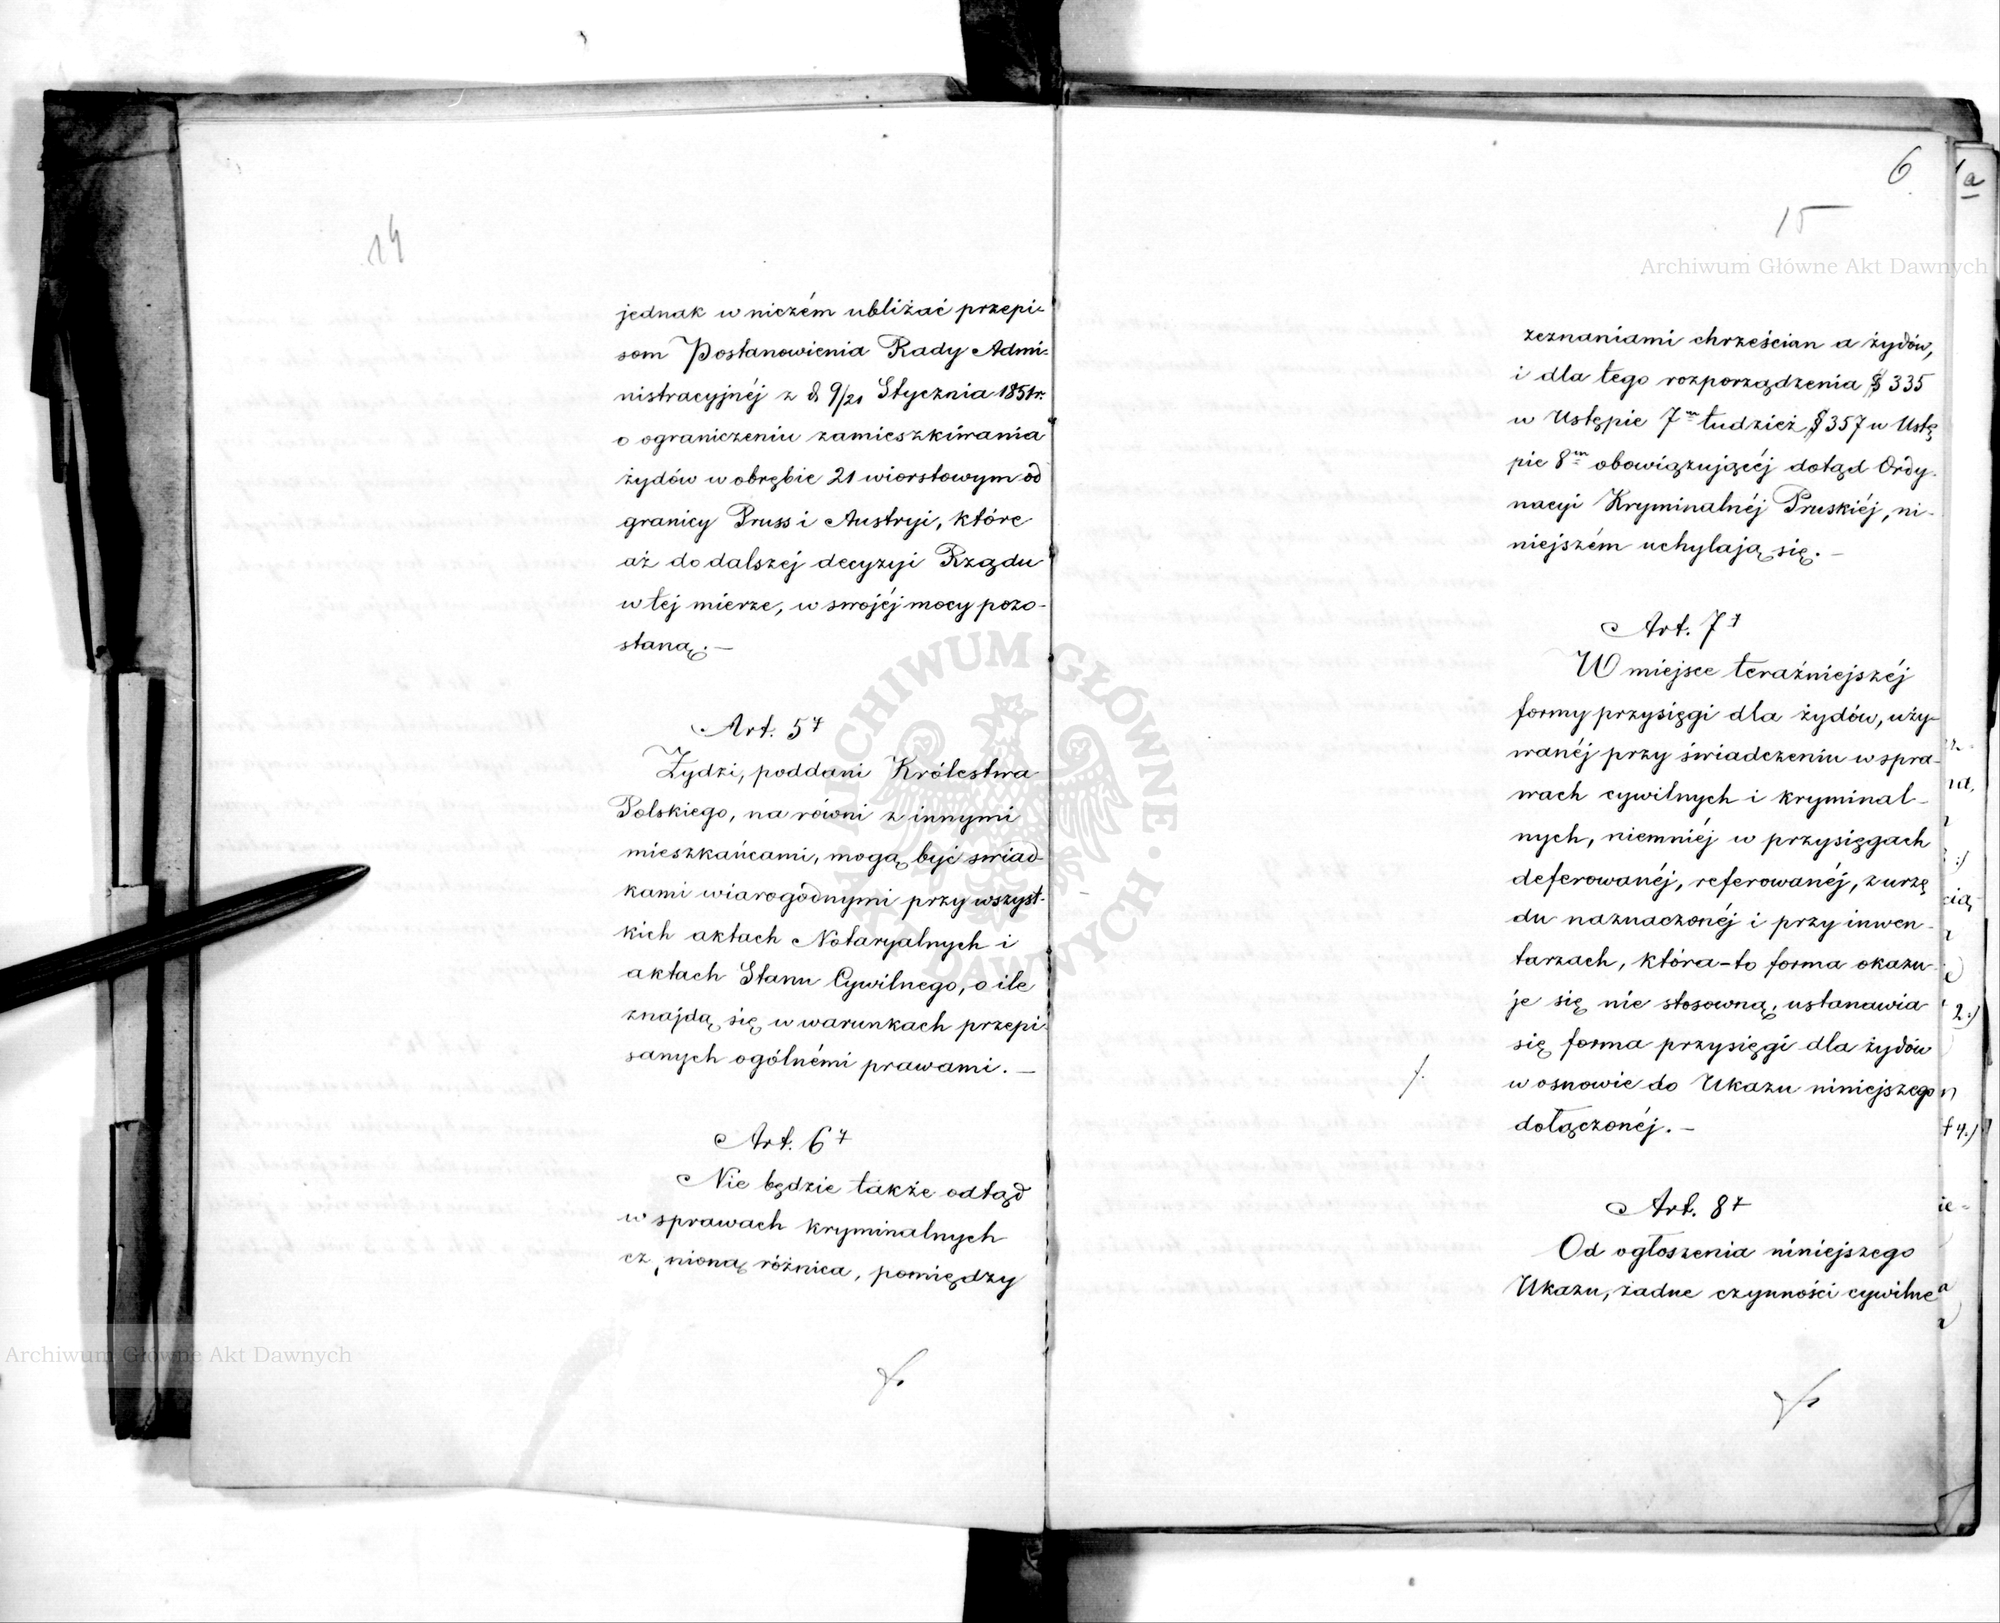 14
jednak w niczém ubliżać przepi-
som Postanowienia Rady Admi-
nistracyjnéj z d. 9/21 Stycznia 1851 r.
o ograniczeniu zamieszkiwania
żydów w obrębie 21 wiorstowym od
granicy Pruss i Austryi, które
aż do dalszej decyzyi Rządu
w tej mierze, w swojéj mocy pozo-
staną. —
Art. 5ty
Żydzi, poddani Królestwa
Polskiego, na równi z innymi
mieszkańcami, mogą być swiad-
kami wiarogodnymi przy wszyst-
kich aktach Notaryalnych i
aktach Stanu Cywilnego, o ile
znajdą się w warunkach przepi-
sanych ogólnémi prawami. —
Art. 6ty
Nie będzie także odtąd
w sprawach kryminalnych
czyniona różnica, pomiędzy
6
15
zeznaniami chrześcian a żydów,
i dla tego rozporządzenia § 335
w Ustępie 7m tudzież § 357 w Ustę
pie 8m obowiązującéj dotąd Ordy-
nacyi Kryminalnéj Pruskiéj, ni-
niejszém uchylają się. —
Art. 7y
W miejsce teraźniejszéj
formy przysięgi dla żydów, uży-
wanéj przy świadczeniu w spra-
wach cywilnych i kryminal-
nych, niemniéj w przysięgach
deferowanéj, referowanéj, z urzę
du naznaczonéj i przy inwen-
tarzach, która-to forma okazu-
je się nie stosowną, ustanawia
się forma przysięgi dla żydów
w osnowie do Ukazu niniejszego
dołączonéj. —
Art. 8y
Od ogłoszenia niniejszego
Ukazu, żadne czynności cywilne
1a
Archiwum Główne Akt Dawnych
ARCHIWUM GŁÓWNE AKT DAWNYCH
Archiwum Główne Akt Dawnych